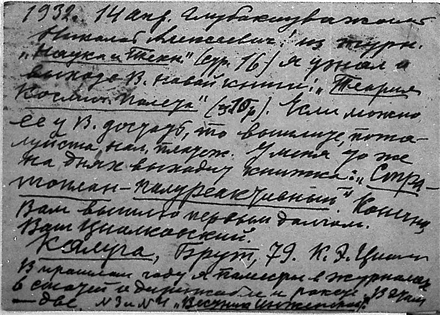 1932. 14 апр. Глубокоуважаемый
Николай Алексеевич! из журн.
„Наука и Техн." (стр. 16) я узнал о
выходе В. новой книги: „Теория
Космич. полета" (ц. 10 р.). Если можно
ее у В. достать, то вышлите, пожа-
луйста, нал. плат. У меня тоже
на днях выходит книжка: „Стра-
топлан-полуреактивный". Конечно
Вам вышлю первым долгом.
Ваш Циолковский.
Калуга, Брут, 79. К. Э. Циолк
В прошлом году я поместил в журналах
статей о дирижабле и ракете. В этом
— две № 3 и № 4 „Вестник Инженеров"